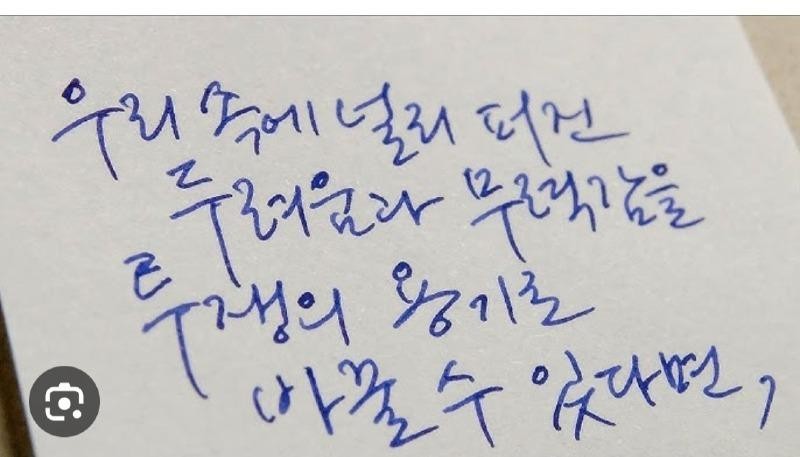 우리 속에 널리 퍼진
두려움과 무력감을
투쟁의 용기로
바꿀 수 있다면,